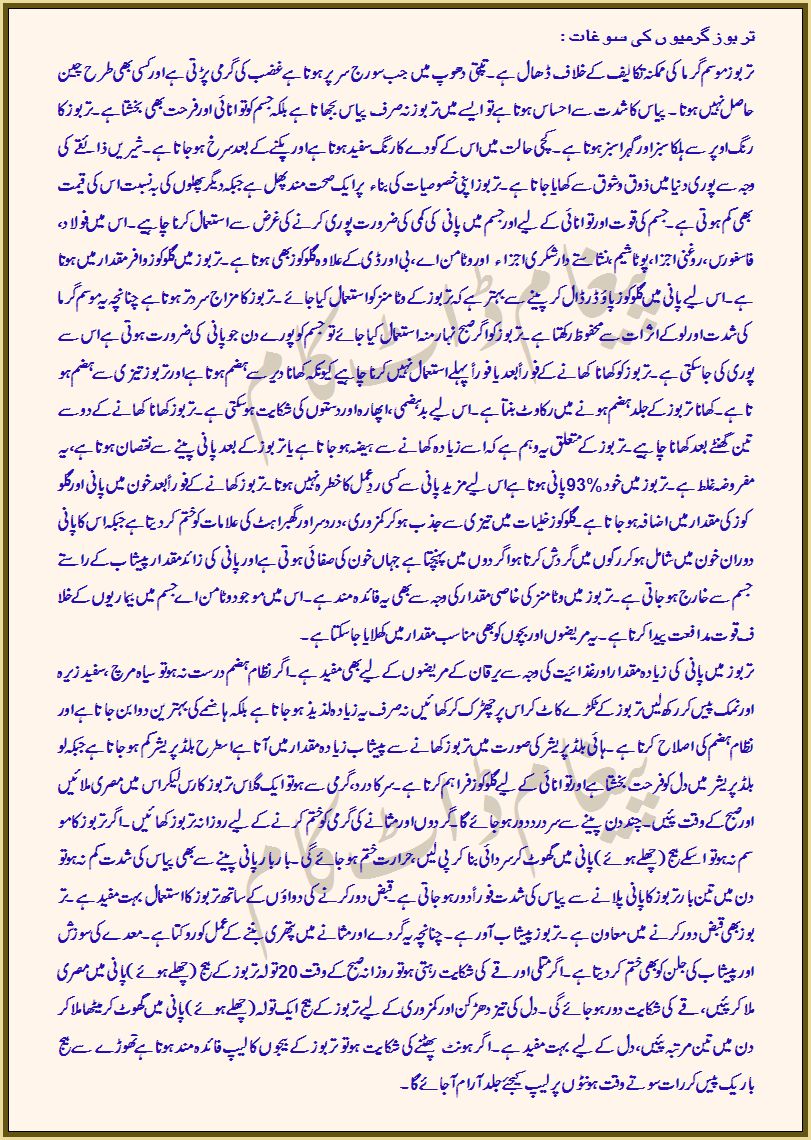 تربوز گرمیوں کی سوغات :
تربوز موسم گرما کی ممکنہ تکالیف کے خلاف ڈھال ہے۔ تپتی دھوپ میں جب سورج سر پر ہوتا ہے غضب کی گرمی پڑتی ہے اور کسی بھی طرح چین
حاصل نہیں ہوتا۔ پیاس کا شدت سے احساس ہوتا ہے تو ایسے میں تربوز نہ صرف پیاس بجھاتا ہے بلکہ جسم کو توانائی اور فرحت بھی بخشتا ہے۔ تربوز کا
رنگ اوپر سے ہلکا سبز اور گہرا سبز ہوتا ہے۔ کچی حالت میں اس کے گودے کا رنگ سفید ہوتا ہے اور پکنے کے بعد سرخ ہو جاتا ہے۔ شیریں ذائقے کی
وجہ سے پوری دنیا میں ذوق و شوق سے کھایا جاتا ہے۔ تربوز اپنی خصوصیات کی بناء پر ایک صحت مند پھل ہے جبکہ دیگر پھلوں کی بہ نسبت اس کی قیمت
بھی کم ہوتی ہے۔ جسم کی قوت اور توانائی کے لیے اور جسم میں پانی کی کمی کی ضرورت پوری کرنے کی غرض سے استعمال کرنا چاہیے۔ اس میں فولاد،
فاسفورس، روغنی اجزا، پوٹاشیم، نشاستے دار شکری اجزاء اور وٹامن اے، بی اور ڈی کے علاوہ گلوکوز بھی ہوتا ہے۔ تربوز میں گلوکوز وافر مقدار میں ہوتا
ہے۔ اس لیے پانی میں گلوکوز پاؤڈر ڈال کر پینے سے بہتر ہے کہ تربوز کے وٹامنز کو استعمال کیا جائے۔ تربوز کا مزاج سرد تر ہوتا ہے چنانچہ یہ موسم گرما
کی شدت اور لو کے اثرات سے محفوظ رکھتا ہے۔ تربوز کو اگر صبح نہار منہ استعمال کیا جائے تو جسم کو پورے دن جو پانی کی ضرورت ہوتی ہے اس سے
پوری کی جاسکتی ہے۔ تربوز کو کھانا کھانے کے فوراً بعد یا فوراً پہلے استعمال نہیں کرنا چاہیے کیونکہ کھانا دیر سے ہضم ہوتا ہے اور تربوز تیزی سے ہضم ہو
تا ہے۔ کھانا تربوز کے جلد ہضم ہونے میں رکاوٹ بنتا ہے۔ اس لیے بدہضمی، اپھارہ اور دستوں کی شکایت ہوسکتی ہے۔ تربوز کھانا کھانے کے دو سے
تین گھنٹے بعد کھانا چاہیے۔ تربوز کے متعلق یہ وہم ہے کہ اسے زیادہ کھانے سے ہیضہ ہو جاتا ہے یا تربوز کے بعد پانی پینے سے نقصان ہوتا ہے، یہ
مفروضہ غلط ہے۔ تربوز میں خود %93 پانی ہوتا ہے اس لیے مزید پانی سے کسی ردِعمل کا خطرہ نہیں ہوتا۔ تربوز کھانے کے فوراً بعد خون میں پانی اور گلو
کوز کی مقدار میں اضافہ ہو جاتا ہے۔ گلوکوز خلیات میں تیزی سے جذب ہو کر کمزوری، دردسر اور گھبراہٹ کی علامات کو ختم کر دیتا ہے جبکہ اس کا پانی
دوران خون میں شامل ہو کر رگوں میں گردش کرتا ہوا گردوں میں پہنچتا ہے جہاں خون کی صفائی ہوتی ہے اور پانی کی زائد مقدار پیشاب کے راستے
جسم سے خارج ہو جاتی ہے۔ تربوز میں وٹامنز کی خاصی مقدار کی وجہ سے بھی یہ فائدہ مند ہے۔ اس میں موجود وٹامن اے جسم میں بیماریوں کے خلا
ف قوت مدافعت پیدا کرتا ہے۔ یہ مریضوں اور بچوں کو بھی مناسب مقدار میں کھلایا جا سکتا ہے۔
تربوز میں پانی کی زیادہ مقدار اور غذائیت کی وجہ سے یرقان کے مریضوں کے لیے بھی مفید ہے۔ اگر نظام ہضم درست نہ ہو تو سیاہ مرچ، سفید زیرہ
اور نمک پیس کر رکھ لیں تربوز کے ٹکڑے کاٹ کر اس پر چھڑک کر کھائیں نہ صرف یہ زیادہ لذیذ ہو جاتا ہے بلکہ ہاضمے کی بہترین دوا بن جاتا ہے اور
نظام ہضم کی اصلاح کرتا ہے۔ ہائی بلڈ پریشر کی صورت میں تربوز کھانے سے پیشاب زیادہ مقدار میں آتا ہے اسطرح بلڈ پریشر کم ہو جاتا ہے جبکہ لو
بلڈ پریشر میں دل کو فرحت بخشتا ہے اور توانائی کے لیے گلوکوز فراہم کرتا ہے۔ سر کا درد، گرمی سے ہو تو ایک گلاس تربوز کا رس لیکر اس میں مصری ملائیں
اور صبح کے وقت پئیں۔ چند دن پینے سے سر درد دور ہو جائے گا۔ گردوں اور مثانے کی گرمی کو ختم کرنے کے لیے روزانہ تربوز کھائیں۔ اگر تربوز کا مو
سم نہ ہو تو اسکے بیج (چھلے ہوئے) پانی میں گھوٹ کر سردائی بنا کر پی لیں، حرارت ختم ہو جائے گی۔ بار بار پانی پینے سے بھی پیاس کی شدت کم نہ ہو تو
دن میں تین بار تربوز کا پانی پلانے سے پیاس کی شدت فوراً دور ہو جاتی ہے۔ قبض دور کرنے کی دواؤں کے ساتھ تربوز کا استعمال بہت مفید ہے۔ تر
بوز بھی قبض دور کرنے میں معاون ہے۔ تربوز پیشاب آور ہے۔ چنانچہ یہ گردے اور مثانے میں پتھری بننے کے عمل کو روکتا ہے۔ معدے کی سوزش
اور پیشاب کی جلن کو بھی ختم کر دیتا ہے۔ اگر متلی اور قے کی شکایت رہتی ہو تو روزانہ صبح کے وقت 20 تولہ تربوز کے بیج (چھلے ہوئے) پانی میں مصری
ملا کر پئیں، قے کی شکایت دور ہو جائے گی۔ دل کی تیز دھڑکن اور کمزوری کے لیے تربوز کے بیج ایک تولہ (چھلے ہوئے) پانی میں گھوٹ کر میٹھا ملا کر
دن میں تین مرتبہ پئیں، دل کے لیے بہت مفید ہے۔ اگر ہونٹ پھٹنے کی شکایت ہو تو تربوز کے بیجوں کا لیپ فائدہ مند ہوتا ہے تھوڑے سے بیج
باریک پیس کر رات سوتے وقت ہونٹوں پر لیپ کیجئے جلد آرام آ جائے گا۔
پیغام ڈاٹ کام
پیغام ڈاٹ کام